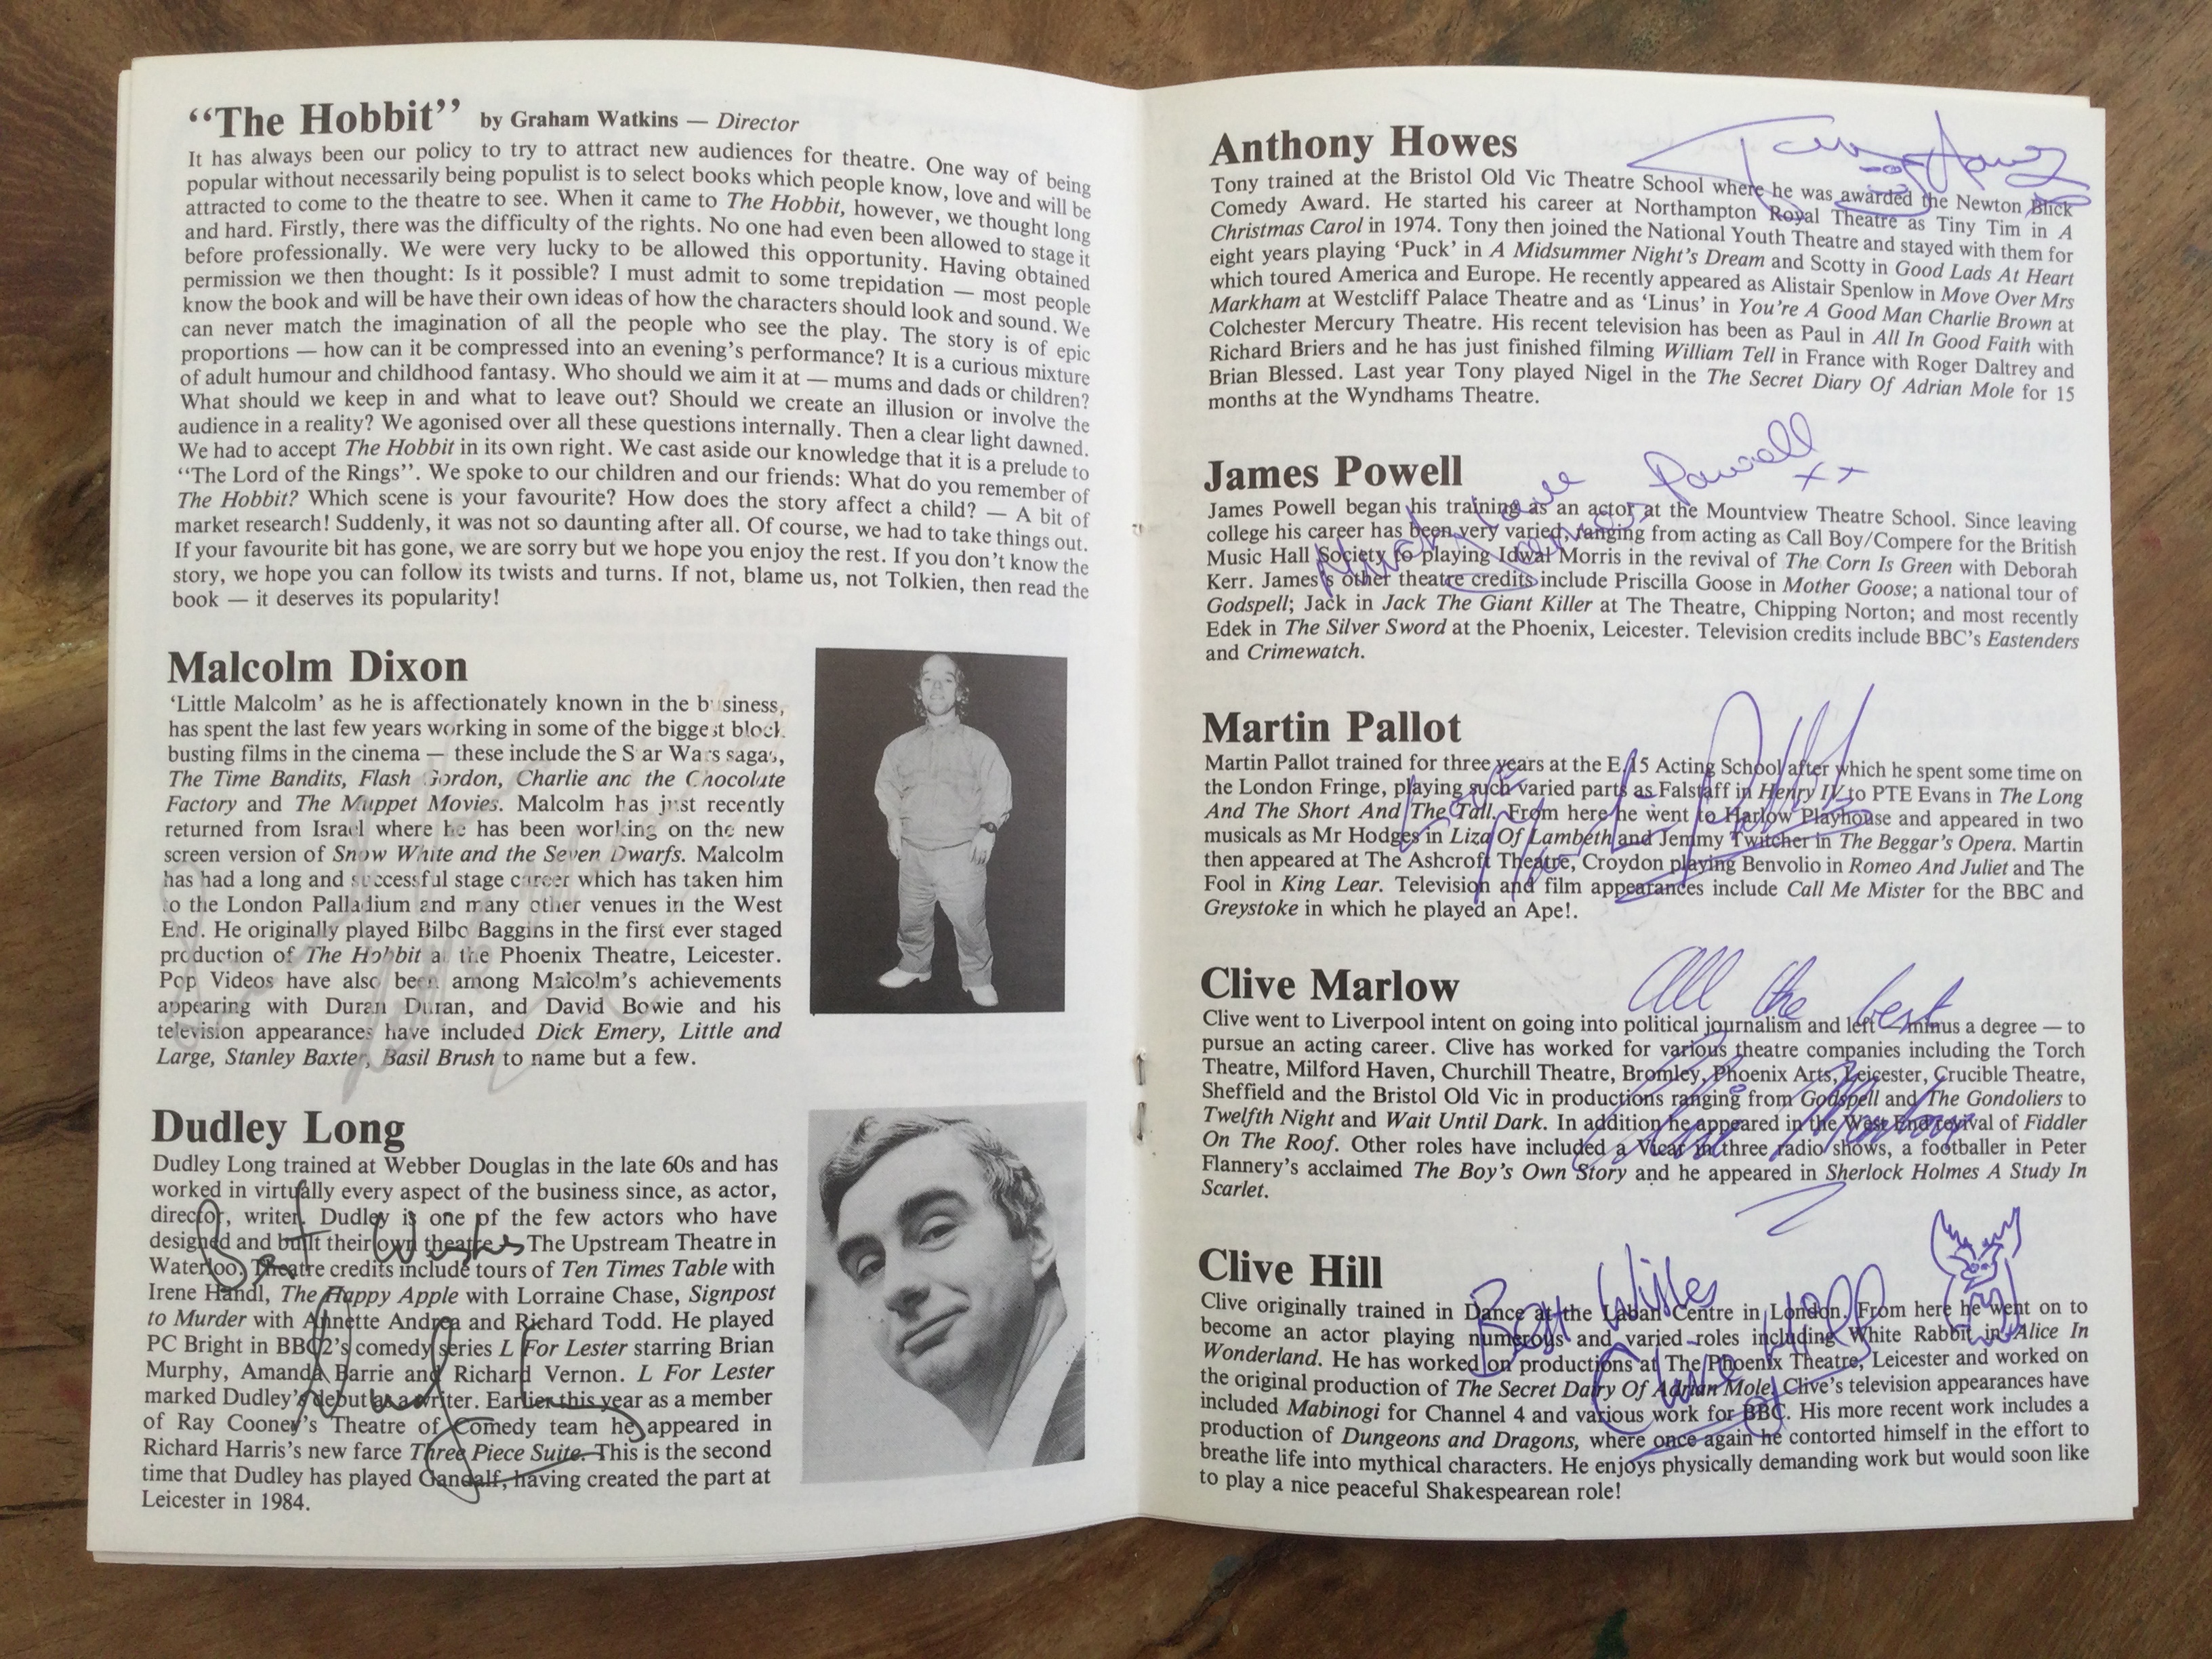 "The Hobbit" by Graham Watkins — Director
It has always been our policy to try to attract new audiences for theatre. One way of being
popular without necessarily being populist is to select books which people know, love and will be
attracted to come to the theatre to see. When it came to The Hobbit, however, we thought long
and hard. Firstly, there was the difficulty of the rights. No one had even been allowed to stage it
before professionally. We were very lucky to be allowed this opportunity. Having obtained
permission we then thought: Is it possible? I must admit to some trepidation — most people
know the book and will be have their own ideas of how the characters should look and sound. We
can never match the imagination of all the people who see the play. The story is of epic
proportions — how can it be compressed into an evening's performance? It is a curious mixture
of adult humour and childhood fantasy. Who should we aim it at — mums and dads or children?
What should we keep in and what to leave out? Should we create an illusion or involve the
audience in a reality? We agonised over all these questions internally. Then a clear light dawned.
We had to accept The Hobbit in its own right. We cast aside our knowledge that it is a prelude to
"The Lord of the Rings". We spoke to our children and our friends: What do you remember of
The Hobbit? Which scene is your favourite? How does the story affect a child? — A bit of
market research! Suddenly, it was not so daunting after all. Of course, we had to take things out.
If your favourite bit has gone, we are sorry but we hope you enjoy the rest. If you don't know the
story, we hope you can follow its twists and turns. If not, blame us, not Tolkien, then read the
book — it deserves its popularity!
Malcolm Dixon
'Little Malcolm' as he is affectionately known in the business,
has spent the last few years working in some of the biggest block
busting films in the cinema — these include the Star Wars sagas,
The Time Bandits, Flash Gordon, Charlie and the Chocolate
Factory and The Muppet Movies. Malcolm has just recently
returned from Israel where he has been working on the new
screen version of Snow White and the Seven Dwarfs. Malcolm
has had a long and successful stage career which has taken him
to the London Palladium and many other venues in the West
End. He originally played Bilbo Baggins in the first ever staged
production of The Hobbit at the Phoenix Theatre, Leicester.
Pop Videos have also been among Malcolm's achievements
appearing with Duran Duran, and David Bowie and his
television appearances have included Dick Emery, Little and
Large, Stanley Baxter, Basil Brush to name but a few.
Dudley Long
Dudley Long trained at Webber Douglas in the late 60s and has
worked in virtually every aspect of the business since, as actor,
director, writer. Dudley is one of the few actors who have
designed and built their own theatre — The Upstream Theatre in
Waterloo. Theatre credits include tours of Ten Times Table with
Irene Handl, The Happy Apple with Lorraine Chase, Signpost
to Murder with Annette Andrea and Richard Todd. He played
PC Bright in BBC2's comedy series L For Lester starring Brian
Murphy, Amanda Barrie and Richard Vernon. L For Lester
marked Dudley's debut as a writer. Earlier this year as a member
of Ray Cooney's Theatre of Comedy team he appeared in
Richard Harris's new farce Three Piece Suite. This is the second
time that Dudley has played Gandalf, having created the part at
Leicester in 1984.
Best Wishes
Anthony Howes
Tony Howes
Tony trained at the Bristol Old Vic Theatre School where he was awarded the Newton Blick
Comedy Award. He started his career at Northampton Royal Theatre as Tiny Tim in A
Christmas Carol in 1974. Tony then joined the National Youth Theatre and stayed with them for
eight years playing 'Puck' in A Midsummer Night's Dream and Scotty in Good Lads At Heart
which toured America and Europe. He recently appeared as Alistair Spenlow in Move Over Mrs
Markham at Westcliff Palace Theatre and as 'Linus' in You're A Good Man Charlie Brown at
Colchester Mercury Theatre. His recent television has been as Paul in All In Good Faith with
Richard Briers and he has just finished filming William Tell in France with Roger Daltrey and
Brian Blessed. Last year Tony played Nigel in the The Secret Diary Of Adrian Mole for 15
months at the Wyndhams Theatre.
James Powell
James Powell began his training as an actor at the Mountview Theatre School. Since leaving
college his career has been very varied, ranging from acting as Call Boy/Compere for the British
Music Hall Society to playing Idwal Morris in the revival of The Corn Is Green with Deborah
Kerr. James's other theatre credits include Priscilla Goose in Mother Goose; a national tour of
Godspell; Jack in Jack The Giant Killer at The Theatre, Chipping Norton; and most recently
Edek in The Silver Sword at the Phoenix, Leicester. Television credits include BBC's Eastenders
and Crimewatch.
Much love
James Powell
xx
Martin Pallot
Martin Pallot trained for three years at the E.15 Acting School after which he spent some time on
the London Fringe, playing such varied parts as Falstaff in Henry IV to PTE Evans in The Long
And The Short And The Tall. From here he went to Harlow Playhouse and appeared in two
musicals as Mr Hodges in Liza Of Lambeth and Jemmy Twitcher in The Beggar's Opera. Martin
then appeared at The Ashcroft Theatre, Croydon playing Benvolio in Romeo And Juliet and The
Fool in King Lear. Television and film appearances include Call Me Mister for the BBC and
Greystoke in which he played an Ape!.
Clive Marlow
Clive went to Liverpool intent on going into political journalism and left — minus a degree — to
pursue an acting career. Clive has worked for various theatre companies including the Torch
Theatre, Milford Haven, Churchill Theatre, Bromley, Phoenix Arts, Leicester, Crucible Theatre,
Sheffield and the Bristol Old Vic in productions ranging from Godspell and The Gondoliers to
Twelfth Night and Wait Until Dark. In addition he appeared in the West End revival of Fiddler
On The Roof. Other roles have included a Vicar in three radio shows, a footballer in Peter
Flannery's acclaimed The Boy's Own Story and he appeared in Sherlock Holmes A Study In
Scarlet.
All the best
Clive Marlow
Clive Hill
Clive originally trained in Dance at the Laban Centre in London. From here he went on to
become an actor playing numerous and varied roles including White Rabbit in Alice In
Wonderland. He has worked on productions at The Phoenix Theatre, Leicester and worked on
the original production of The Secret Dairy Of Adrian Mole. Clive's television appearances have
included Mabinogi for Channel 4 and various work for BBC. His more recent work includes a
production of Dungeons and Dragons, where once again he contorted himself in the effort to
breathe life into mythical characters. He enjoys physically demanding work but would soon like
to play a nice peaceful Shakespearean role!
Best Wishes
Clive Hill